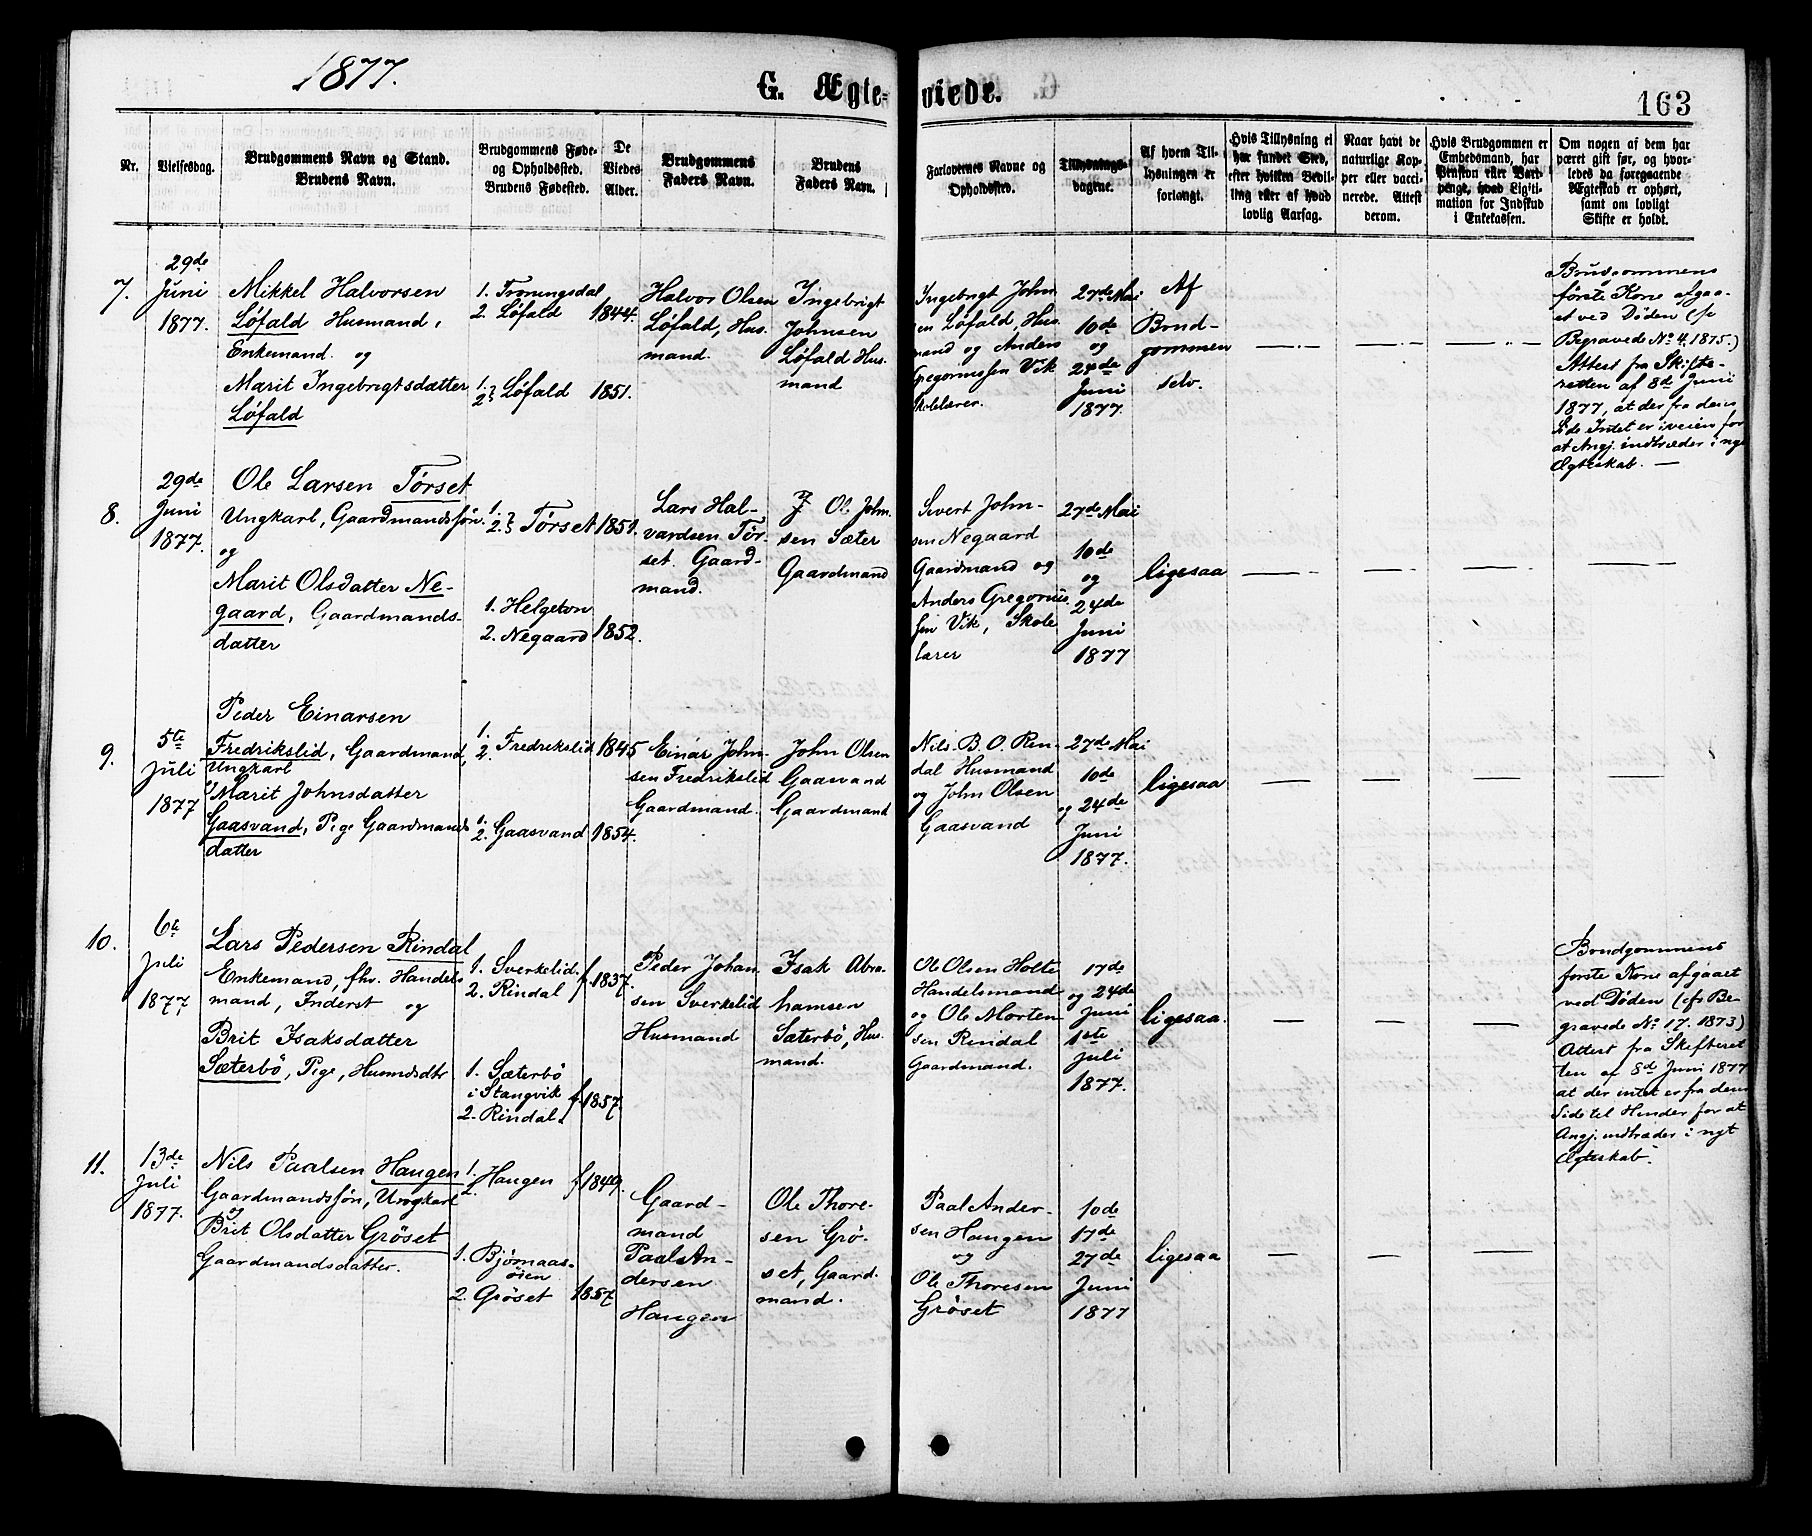 1877.
G. Ægte-
viede.
163
Nr.
Vielsesdag.
Brudgommens Navn og Stand.
Brudens Navn.
Brudgommens Føde-
og Opholdssted.
Brudens Fødested.
De
Viedes
Alder.
Brudgommens
Faders Navn.
Brudens
Faders Navn.
Forlovernes Navne og
Opholdssted.
Tillysnings-
dagene.
Af hvem Til-
lysningen er
forlangt.
Hvis Tillysning ei
har fundet Sted,
efter hvilken Bevil-
ling eller af hvad
lovlig Aarsag.
Naar havt de
naturlige Kop-
per eller vacci-
nerede. Attest
derom.
Hvis Brudgommen er
Embedsmand, har
Pension eller Vart-
penge, hvad Legiti-
mation for Indskud
i Enkekassen.
Om nogen af dem har
været gift før, og hvor-
ledes da foregaaende
Ægteskab er ophørt,
samt om lovligt
Skifte er holdt.
7.
29de
Juni
1877.
Mikkel Halvorsen
Løfald Husmand,
Enkemand. og
Marit Ingebrigtsdatter
Løfald
1. Troningsdal
2. Løfald
1844.
1.
2. Løfald
1851.
Halvor Olsen
Løfald, Hus.
mand.
Ingebrigt
Johnsen
Løfald Hus.
mand
Ingebrigt John
sen Løfald, Hus
mand og Anders
Gregoriussen Vik
Skolelærer.
27de Mai
10de
og
24de
Juni
1877.
Af
Brud-
gommen
selv.
Brudgommens
første Kone afgaa-
et ved Døden (cfr
Begravede No 4, 1875.)
Attest fra Skifte-
retten af 8de Juni
1877, at der fra dens
Side Intet er iveien for
at Angj. indtræder i nyt
Ægteskab. —
8.
29de
Juni
1877.
Ole Larsen Tørset
Ungkarl, Gaardmandssøn.
og
Marit Olsdatter Ne-
gaard, Gaardmands-
datter
1.
2. Tørset
1851.
1. Helgeton
2. Negaard
1852.
Lars Hal-
vardsen Tør-
set. Gaard-
mand.
Ol John.
sen Sæter
Gaardmand
Sivert John-
sen Negaard
Gaardmand og
Anders Gregorius
sen Vik, Skole
lærer
27de Mai
10de
og
24de
Juni
1877
ligesaa
9.
5te
Juli
1877
Peder Einarsen
Fredrikslid, Gaardmand,
Ungkarl
og Marit Johnsdatter
Gaasvand, Pige Gaardmands
datter
1.
2. Fredrikslid
1845
1.
2. Gaasvand
1854.
Einar John-
sen Fredrikslid
Gaardmand.
John Olsen
Gaasvand
Gaardmand
Nils B. O. Rin-
dal Husmand
og John Olsen
Gaasvand
27de Mai
10de
og 24de
Juni
1877.
ligesaa
10.
6te
Juli
1877
Lars Pedersen Rindal
Enkemand, fhv. Handels
mand, Inderst og
Brit Isaksdatter
Sæterbö, Pige, Husmdsdtr
1. Sverkelid.
2. Rindal
f. 1837.
1. Sæterbö
i Stangvik
2. Rindal.
f. 1857.
Peder Johan
sen Sverkelid
Husmand
Isak Abra
hamsen
Sæterbö, Hus.
mand.
Ole Olsen Holte
Handelsmand
og Ole Morten
sen Rindal
Gaardmand.
17de
og 24de
Juni
1ste
Juli
1877.
ligesaa.
Brudgommens
første Kone afgaaet
ved Døden (cfr Be-
gravede No 17. 1873)
Attest fra Skifteret
ten af 8de Juni 1877
at der intet er fra dens
Side til Hinder for at
Angj. indtræder i nyt
Ægteskab.
11.
13de
Juli
1877.
Nils Paalsen Haugen
Gaardmandssøn, Ungkarl
og
Brit Olsdatter Gröset
Gaardmandsdatter.
1.
2. Haugen
f 1849.
1. Bjørnaas-
öien
2. Gröset
1857.
Gaard-
mand
Paal An-
dersen
Haugen
Ole Thore-
sen Grö-
set, Gaard.
mand.
Paal Ander-
sen Haugen
og
Ole Thoresen
Gröset
10de
17de
27de
Juni
1877
ligesaa